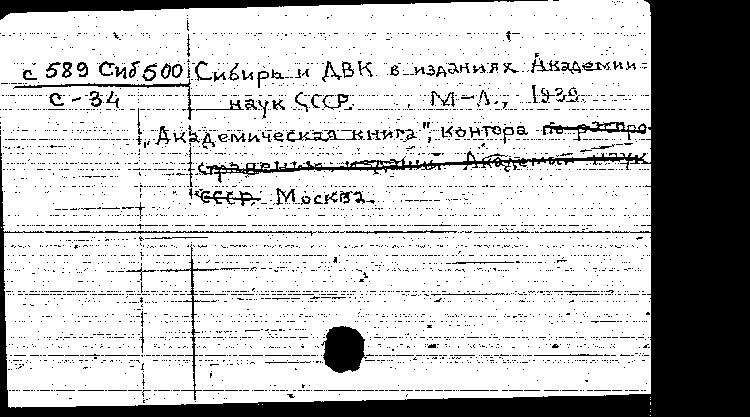 с 589 Сиб500 Сибирь и ДВК в изданиях Академии
С-34 наук СССР. М-Л., 1939.
„Академическая книга", контора по распро-
странению изданий Академии наук
СССР. Москва.